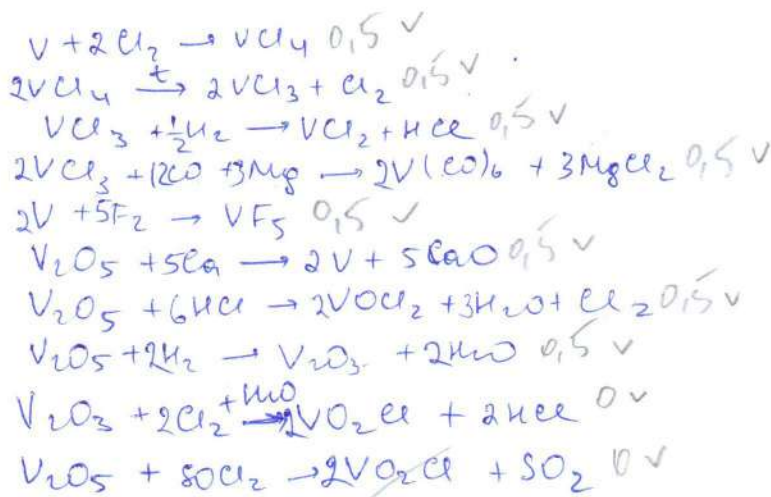 V + 2Cl₂ → VCl₄ 0,5 v
2VCl₄ →ᵗ 2VCl₃ + Cl₂ 0,5 v
VCl₃ + ½H₂ → VCl₂ + HCl 0,5 v
2VCl₃ + 12CO + 3Mg → 2V(CO)₆ + 3MgCl₂ 0,5 v
2V + 5F₂ → VF₅ 0,5 v
V₂O₅ + 5Ca → 2V + 5CaO 0,5 v
V₂O₅ + 6HCl → 2VOCl₂ + 3H₂O + Cl₂ 0,5 v
V₂O₅ + 2H₂ → V₂O₃ + 2H₂O 0,5 v
V₂O₃ + 2Cl₂ + H₂O → 2VO₂Cl + 2HCl 0 v
V₂O₅ + SOCl₂ → 2VO₂Cl + SO₂ 0 v